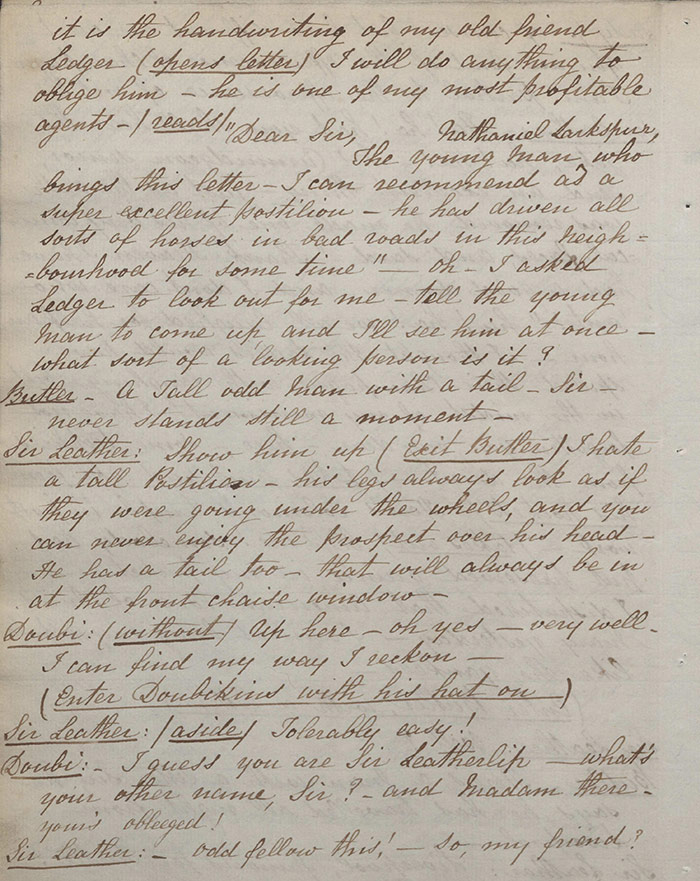 it is the handwriting of my old friend
Ledger (opens letter) I will do anything to
oblige him – he is one of my most profitable
agents – (reads) "Dear Sir, Nathaniel Larkspur,
The young Man who
bings this letter – I can recommend as a
super excellent Postilion – he has driven all
sorts of horses in bad roads in this neigh=
=bourhood for some time" – oh – I asked
Ledger to look out for me – tell the young
Man to come up, and I'll see him at once –
what sort of a looking person is it?
Butler – A Tall odd Man with a tail – Sir –
never stands still a moment –
Sir Leather: Show him up (Exit Butler) I hate
a tall Postilion – his legs always look as if
they were going under the wheels, and you
can never enjoy the prospect over his head –
He has a tail too – that will always be in
at the front chaise window –
Doubi: (without) Up here – oh yes – very well –
I can find my way I reckon –
(Enter Doubikins with his hat on)
Sir Leather: (aside) Tolerably easy!
Doubi: – I guess you are Sir Leatherlip – what's
your other name, Sir? – and Madam there –
your's obleeged!
Sir Leather: – odd fellow this! – so, my friend?